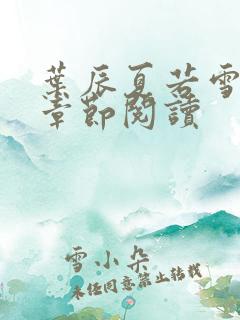 葉辰夏若雪
章節閱讀
雪小朵
未經同意禁止轉載